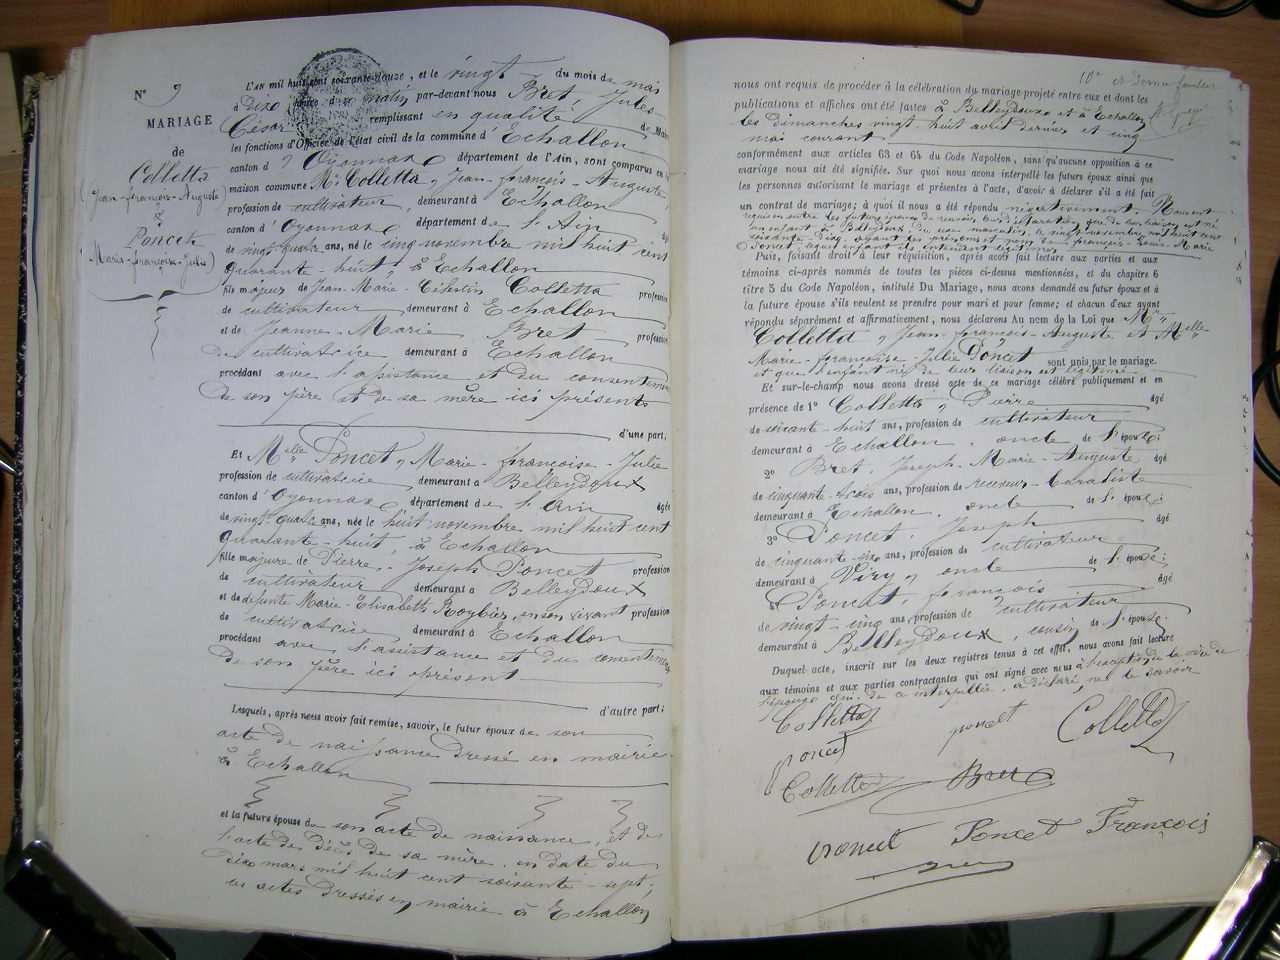 N° 9
MARIAGE
de
Colletta
(Jean-françois-Auguste)
&
Poncet
(Marie-françoise-Julie)
L'AN mil huit cent soixante-douze, et le vingt du mois de mai
à dix heures du matin par-devant nous Bret, Jules-
César remplissant en qualité de Maire
les fonctions d'Officier de l'état civil de la commune d'Echallon
canton d'Oyonnax département de l'Ain, sont comparus en la
maison commune Mr Colletta, Jean-françois-Auguste
profession de cultivateur, demeurant à Echallon
canton d'Oyonnax département de l'Ain âgé
de vingt quatre ans, né le cinq novembre mil huit cent
quarante-huit, à Echallon
fils majeur de Jean-Marie-Célestin Colletta profession
de cultivateur demeurant à Echallon
et de Jeanne-Marie Bret profession
de cultivatrice demeurant à Echallon
procédant avec l'assistance et du consentement
de son père et de sa mère ici présents
d'une part;
Et Melle Poncet, Marie-françoise-Julie
profession de cultivatrice demeurant à Belleydoux
canton d'Oyonnax département de l'Ain âgée
de vingt quatre ans, née le huit novembre mil huit cent
quarante-huit, à Echallon
fille majeure de Pierre-Joseph Poncet profession
de cultivateur demeurant à Belleydoux
et de defunte Marie-Elisabeth Roybier, en son vivant profession
de cultivatrice demeurant à Echallon
procédant avec l'assistance et du consentement
de son père ici présent
d'autre part;
Lesquels, après nous avoir fait remise, savoir, le futur époux de son
acte de naissance dressé en mairie
à Echallon
et la future épouse de son acte de naissance, et de
l'acte de décès de sa mère, en date du
dix mars mil huit cent soixante-sept;
les actes dressés en mairie à Echallon
10e
nous ont requis de procéder à la célébration du mariage projeté entre eux et dont les
publications et affiches ont été faites à Belleydoux et à Echallon
les dimanches vingt-huit avril dernier et cinq
mai courant
conformément aux articles 63 et 64 du Code Napoléon, sans qu'aucune opposition à ce
mariage nous ait été signifiée. Sur quoi nous avons interpellé les futurs époux ainsi que
les personnes autorisant le mariage et présentes à l'acte, d'avoir à déclarer s'il a été fait
un contrat de mariage; à quoi il nous a été répondu négativement. Nous ont
requis en outre les futurs époux de recevoir leur déclaration que de leur liaison est né
un enfant à Belleydoux, du sexe masculin, le vingt novembre mil huit cent
soixante-dix, ayant les prénoms et nom de françois-Louis-Marie
Poncet, lequel enfant ils entendent légitimer
Puis, faisant droit à leur réquisition, après avoir fait lecture aux parties et aux
témoins ci-après nommés de toutes les pièces ci-dessus mentionnées, et du chapitre 6
titre 5 du Code Napoléon, intitulé Du Mariage, nous avons demandé au futur époux et à
la future épouse s'ils veulent se prendre pour mari et pour femme; et chacun d'eux ayant
répondu séparément et affirmativement, nous déclarons Au nom de la Loi que Mr
Colletta, Jean-françois-Auguste et Melle
Marie-françoise-Julie Poncet sont unis par le mariage.
et que l'enfant né de leur liaison est légitimé
Et sur-le-champ nous avons dressé acte de ce mariage célébré publiquement et en
présence de 1° Colletta, Pierre âgé
de soixante-huit ans, profession de cultivateur
demeurant à Echallon, oncle de l'époux;
2° Bret, Joseph-Marie-Auguste âgé
de cinquante-trois ans, profession de receveur-buraliste
demeurant à Echallon, oncle de l'époux;
3° Poncet, Joseph âgé
de cinquante-six ans, profession de cultivateur
demeurant à Viry, oncle de l'épouse;
4° Poncet, françois âgé
de vingt-cinq ans, profession de cultivateur
demeurant à Belleydoux, cousin de l'épouse
Duquel acte, inscrit sur les deux registres tenus à cet effet, nous avons fait lecture
aux témoins et aux parties contractantes qui ont signé avec nous à l'exception de la mère de
l'époux qui, de ce interpellée, a déclaré ne le savoir
Colletta poncet Colletta
poncet
Colletta Bret
poncet Poncet François